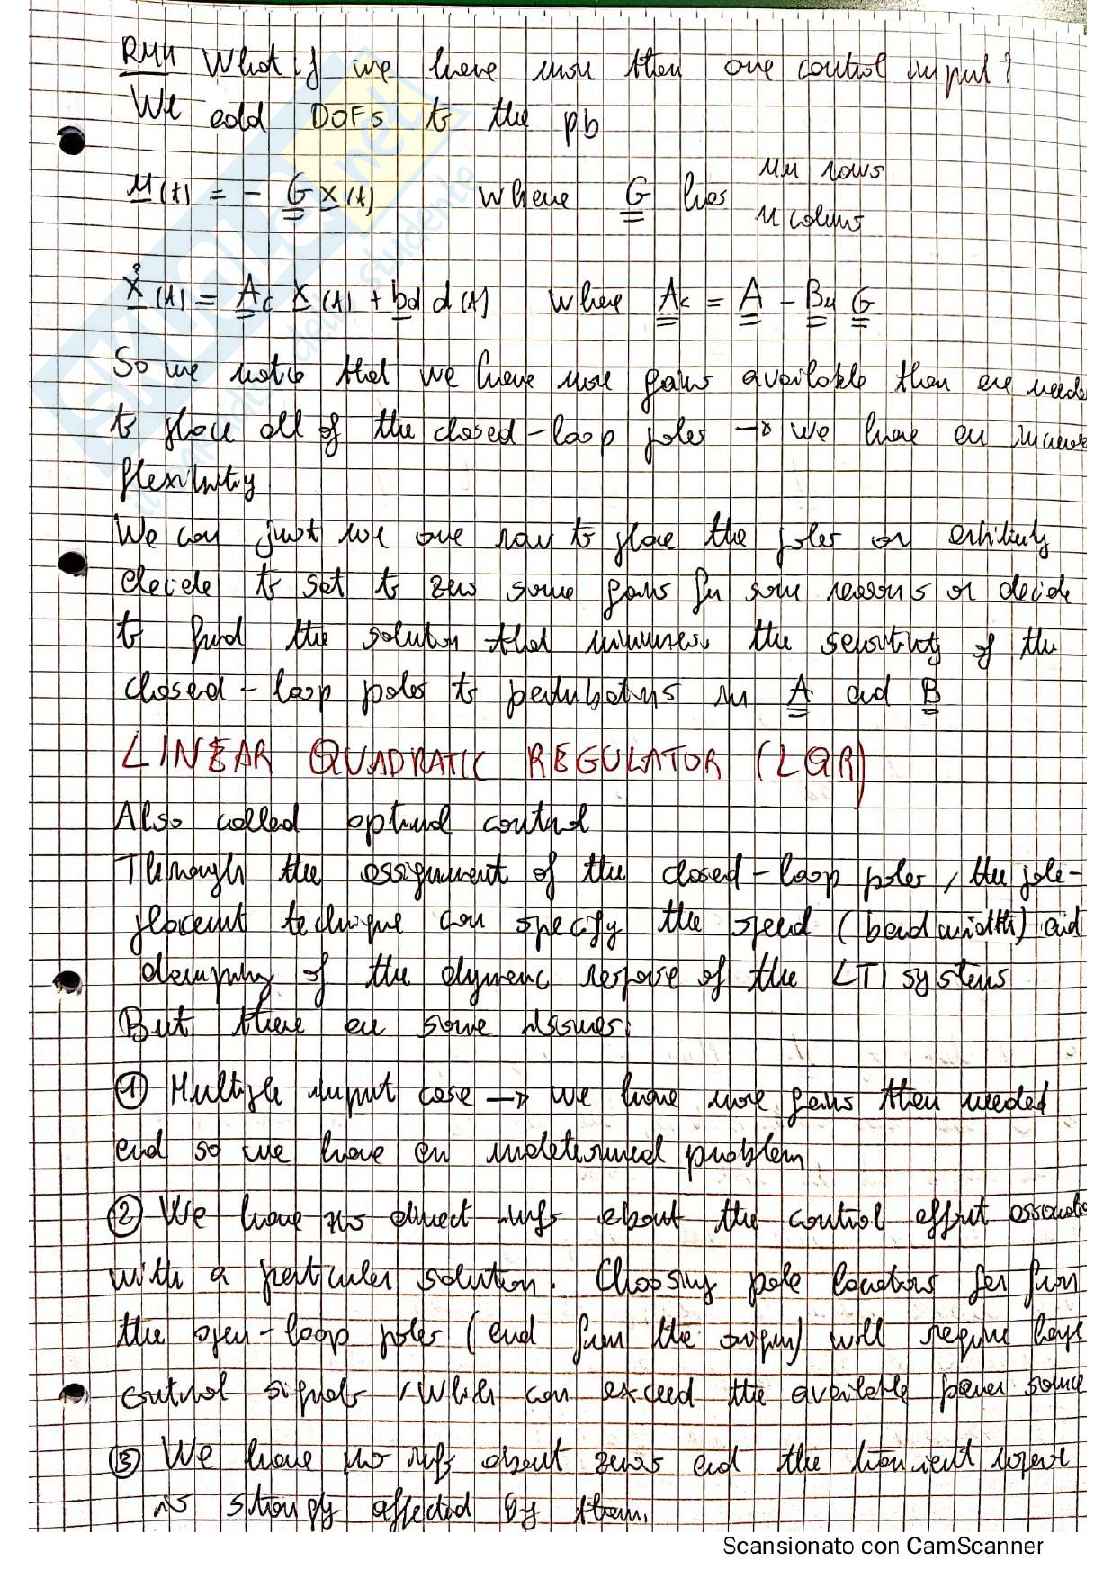 RMK What if we have more than one control input?
We add DOFs to the pb
u(t) = - G x(t) where G has nu rows
n colums
ẋ(t) = Ac x(t) + bd d(t) where Ac = A - Bu G
So we notice that we have more gains available than are neede
to place all of the closed-loop poles → we have an increase
flexibility
We can just use one row to place the poles or arbitrarly
decide to set to zero some gains for some reasons or decide
to find the solution that minimizes the sensitivity of the
closed-loop poles to perturbations in A and B
LINEAR QUADRATIC REGULATOR (LQR)
Also called optimal control
Through the assignment of the closed-loop poles, the pole-
placement technique can specify the speed (bandwidth) and
damping of the dynamic response of the LTI systems
But there are some issues:
① Multiple input case → we have more gains then needed
and so we have an undetermined problem
② We have no direct info about the control effort associate
with a particular solution. Choosing pole locations far from
the open-loop poles (and from the origin) will require large
control signals, which can exceed the available power source
③ We have no info about zeros and the transient response
is strongly affected by them.
Scansionato con CamScanner